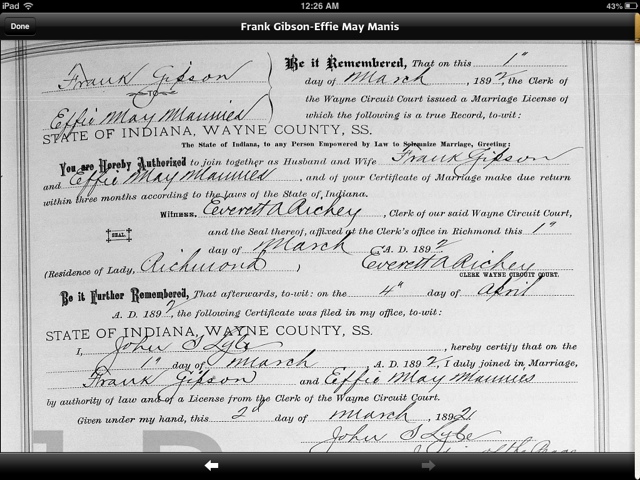 iPad 12:26 AM 43%
Done Frank Gibson-Effie May Manis
Be it Remembered, That on this 1"
Frank Gipson day of March, 1892, the Clerk of
TO the Wayne Circuit Court issued a Marriage License of
Effie May Mannies which the following is a true Record, to-wit:
STATE OF INDIANA, WAYNE COUNTY, SS.
The State of Indiana, to any Person Empowered by Law to Solemnize Marriage, Greeting:
You are Hereby Authorized to join together as Husband and Wife Frank Gipson
and Effie May Mannies, and of your Certificate of Marriage make due return
within three months according to the laws of the State of Indiana.
Witness, Everett A Richey, Clerk of our said Wayne Circuit Court,
SEAL and the Seal thereof, affixed at the Clerk's office in Richmond this 1"
day of March A. D. 1892
(Residence of Lady, Richmond, Everett A Richey
CLERK WAYNE CIRCUIT COURT.
Be it Further Remembered, That afterwards, to-wit: on the 4" day of April
A. D. 1892, the following Certificate was filed in my office, to-wit:
STATE OF INDIANA, WAYNE COUNTY, SS.
I, John S Lyle, hereby certify that on the
1" day of March A. D. 1892, I duly joined in Marriage,
Frank Gipson and Effie May Mannies
by authority of law and of a License from the Clerk of the Wayne Circuit Court.
Given under my hand, this 2" day of March, 1892
John S Lyle
of the